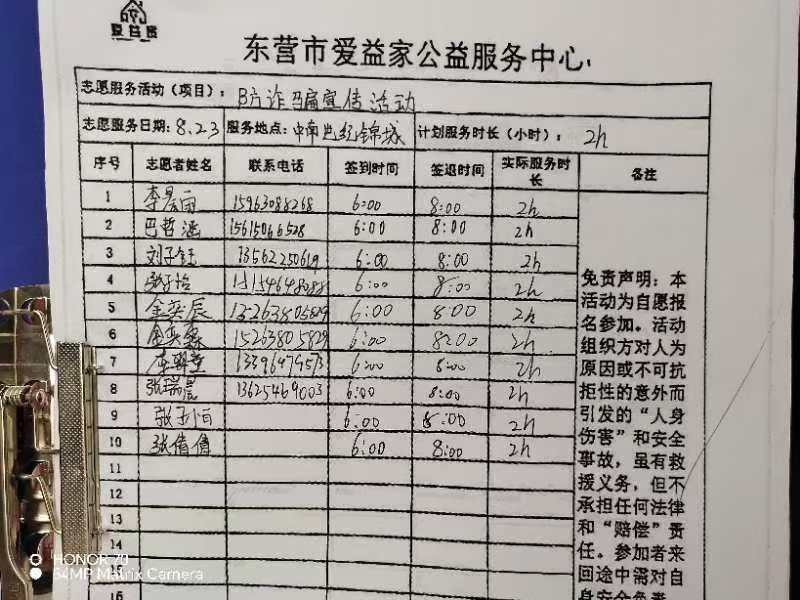 爱益家
东营市爱益家公益服务中心
志愿服务活动（项目）： 防诈骗宣传活动
志愿服务日期：8.23 服务地点：中南世纪锦城 计划服务时长（小时）： 2h
序号 志愿者姓名 联系电话 签到时间 签退时间 实际服务时长 备注
1 李晨雨 15963088268 6:00 8:00 2h
2 巴哲涵 15615066528 6:00 8:00 2h
3 刘子钰 13562250619 6:00 8:00 2h
4 张子怡 6:00 8:00 2h
5 金奕辰 13263805829 6:00 8:00 2h
6 金奕霖 15263805829 6:00 8:00 2h
7 6:00 8:00 2h
8 张瑞晨 13625469003 6:00 8:00 2h
9 张子恒 6:00 8:00 2h
10 张倩倩 6:00 8:00 2h
11
12
13
14
16
免责声明：本
活动为自愿报
名参加。活动
组织方对人为
原因或不可抗
拒性的意外而
引发的“人身
伤害”和安全
事故，虽有救
援义务，但不
承担任何法律
和“赔偿”责
任。参加者来
回途中需对自
身安全负责
HONOR 70
54MP Matrix Camera